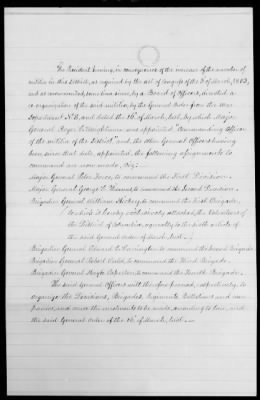 The President having, in consequence of the increase of the number of
militia in this District, as required by the act of Congress of the 3 of March, 1803,
and as recommended, some time since, by a Board of Officers, directed a
re-organization of the said militia, by the General Order from the War
Department N. 8, and dated the 16 of March, last, by which Major
General Roger C. Weightman was appointed Commanding Officer
of the militia of the District, and, the other General Officers having
been, since that date, appointed, the following assignments to
command are now made, viz:
Major General Peter Force, to command the First Division.
Major General George C. to command the Second Division.
Brigadier General William Hickey, to command the First Brigade,
to which is hereby exclusively attached, the Volunteers of
the District of Columbia, agreeably to the article of
the said General Order of the March, last.
Brigadier General Edward to command the Second Brigade.
Brigadier General Robert to command the Third Brigade.
Brigadier General to command the Fourth Brigade.
The said General Officers will therefore proceed, respectively, to
organize the Divisions, Brigades, Regiments, Battalions and
and cause the enrolments to be made, according to law, and
the said General Order of the 16 of March, last.